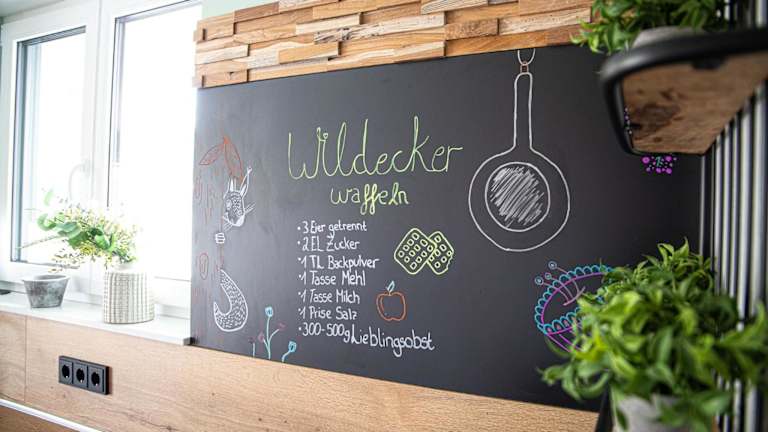 Wildecker
waffeln
• 3 Eier getrennt
• 2 EL Zucker
• 1 TL Backpulver
• 1 Tasse Mehl
• 1 Tasse Milch
• 1 Prise Salz
• 300-500g Lieblingsobst